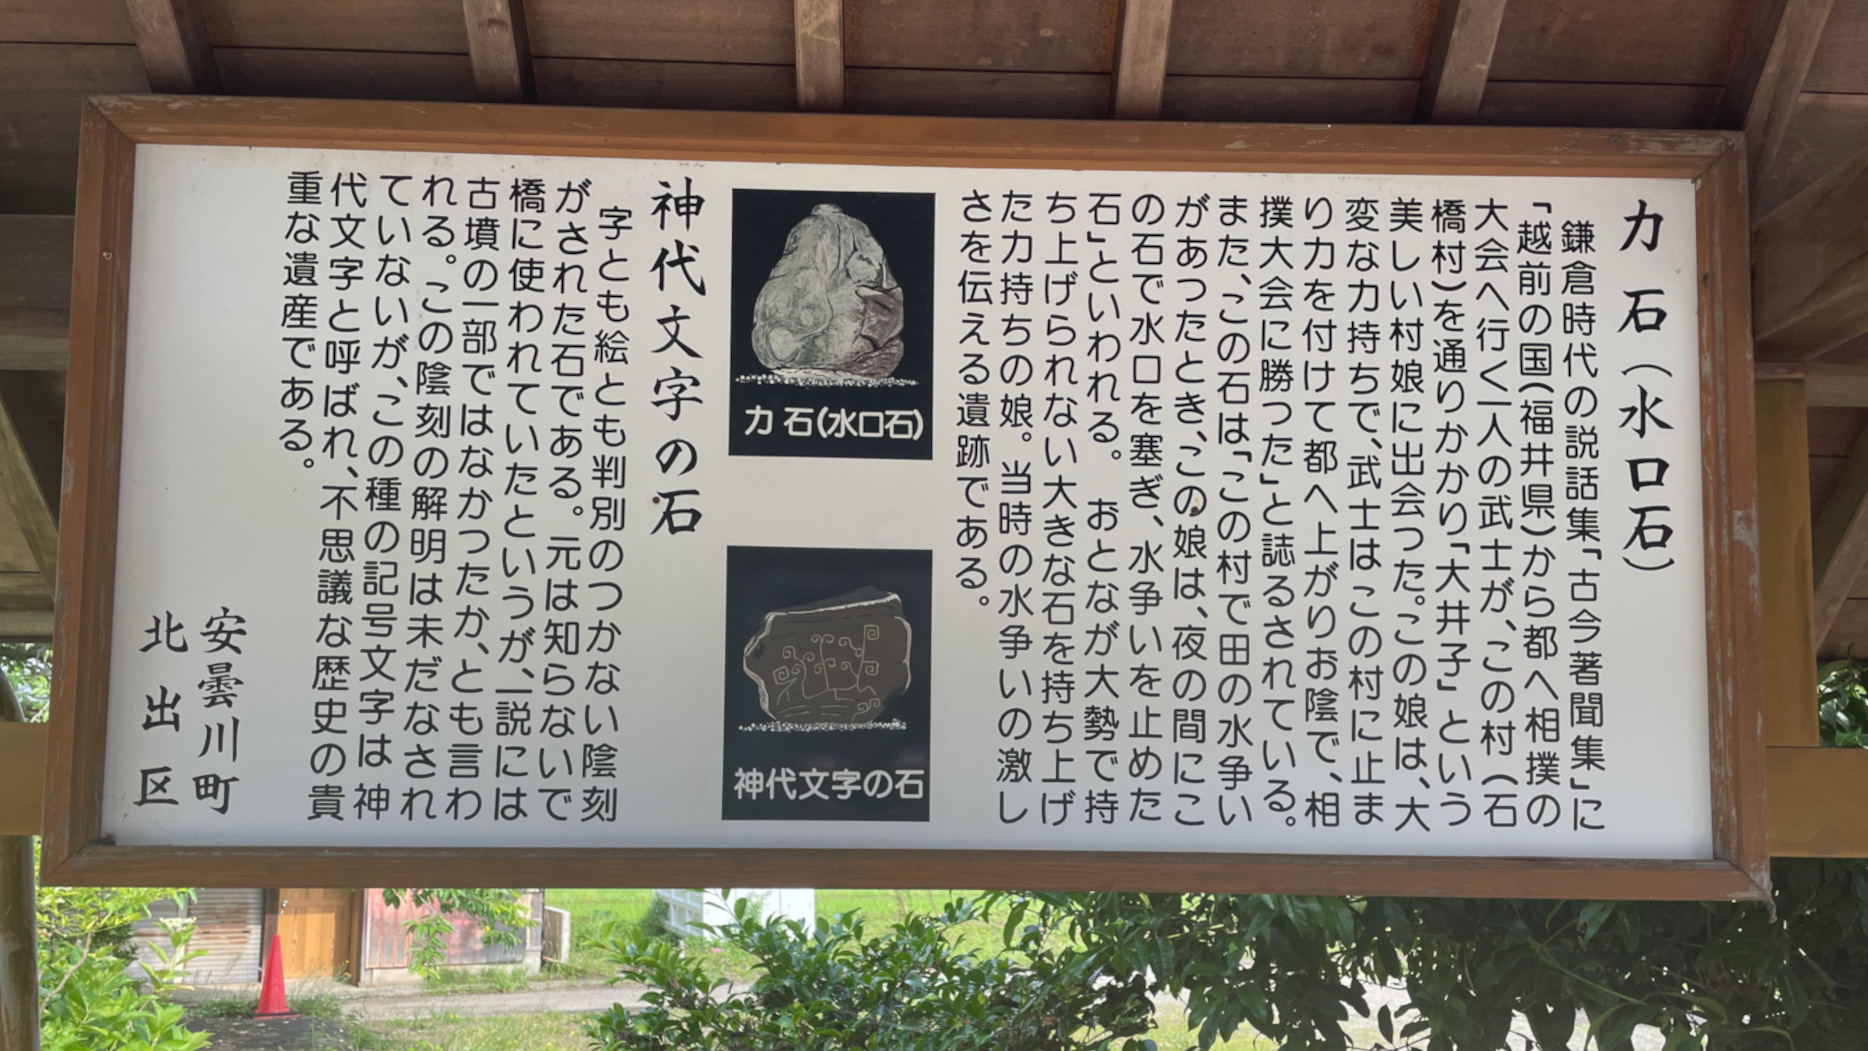 力石（水口石）
鎌倉時代の説話集「古今著聞集」に
「越前の国（福井県）から都へ相撲の
大会へ行く一人の武士が、この村（石
橋村）を通りかかり「大井子」という
美しい村娘に出会った。この娘は、大
変な力持ちで、武士はこの村に止ま
り力を付けて都へ上がりお陰で、相
撲大会に勝った」と誌るされている。
また、この石は「この村で田の水争い
があったとき、この娘は、夜の間にこ
の石で水口を塞ぎ、水争いを止めた
石」といわれる。 おとなが大勢で持
ち上げられない大きな石を持ち上げ
た力持ちの娘。当時の水争いの激し
さを伝える遺跡である。
力石（水口石）
神代文字の石
神代文字の石
字とも絵とも判別のつかない陰刻
がされた石である。元は知らないで
橋に使われていたというが、一説には
古墳の一部ではなかったか、とも言わ
れる。この陰刻の解明は未だなされ
ていないが、この種の記号文字は神
代文字と呼ばれ、不思議な歴史の貴
重な遺産である。
安曇川町
北出区